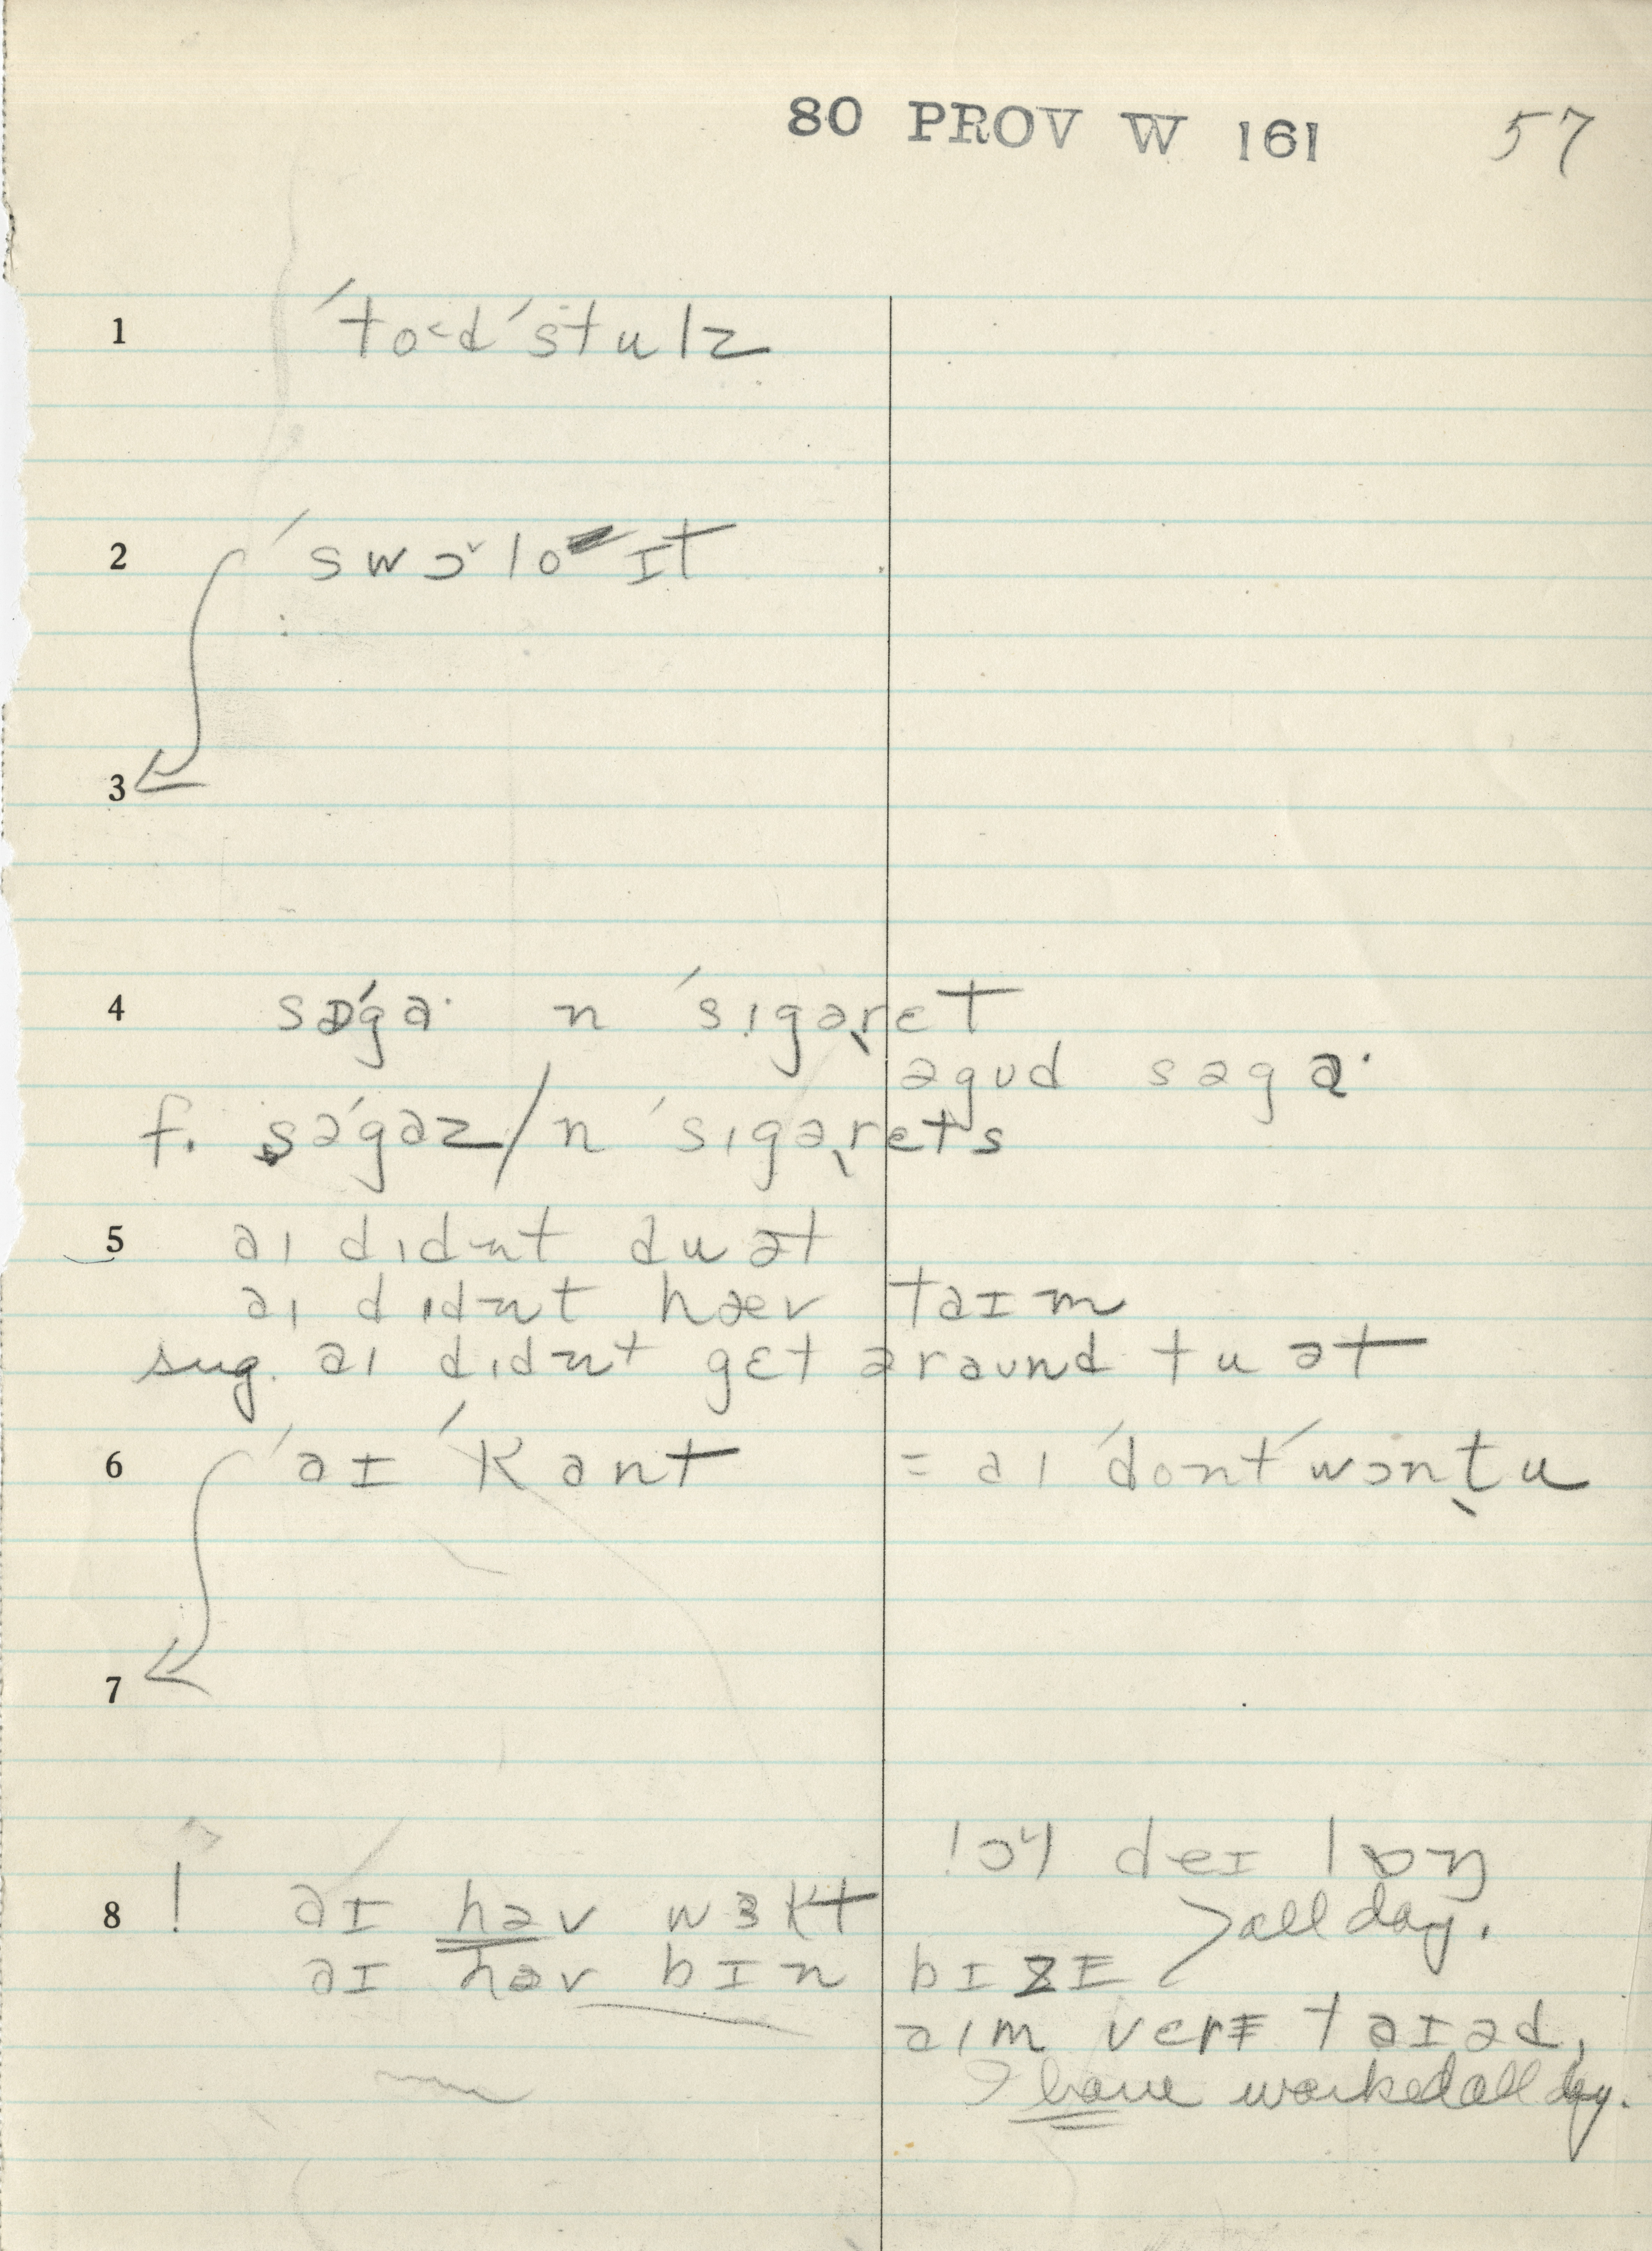 80 PROV W 161 57
1 ˈto˂dˈstulz
2 ˈswɔ˅lo ɪt
3
4 səˈga· n ˈsɪgəˎrɛt
əgud səga·
f. səˈgaz / n ˈsɪgəˎrɛts
5 aɪ dɪdnt du ət
aɪ dɪdnt hæv taɪm
sug. aɪ dɪdnt gɛt əraʊnd tu ət
6 ˈaɪ ˈkant = aɪ ˈdontˈwɔnˎtu
7
deɪ lɒŋ
8 ! aɪ həv wɜkt
> all day.
aɪ həv bɪn bɪzɪ
aɪm verɪ taɪəd,
I have worked all day.